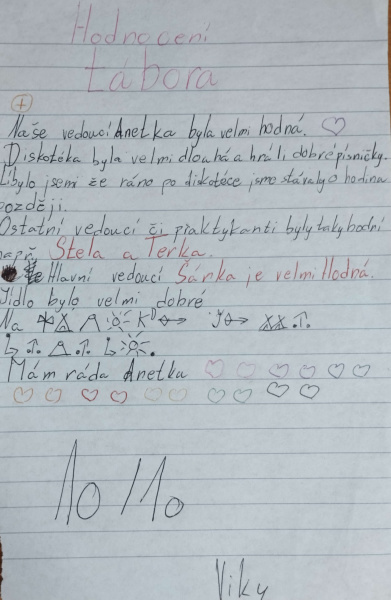 Hodnocení
tábora
+
Naše vedoucí Anetka byla velmi hodná. ♡
Diskotéka byla velmi dlouhá a hráli dobré písničky.
Líbylo jsemi že ráno po diskotéce jsme stávaly o hodina
později.
Ostatní vedoucí či praktykanti byly taky hodní
např. Stela a Terka.
Hlavní vedoucí Šárka je velmi Hodná.
Jídlo bylo velmi dobré
Na
Mám ráda Anetku ♡ ♡ ♡ ♡ ♡ ♡
♡ ♡ ♡ ♡ ♡ ♡ ♡ ♡ ♡ ♡
10/10
Viky